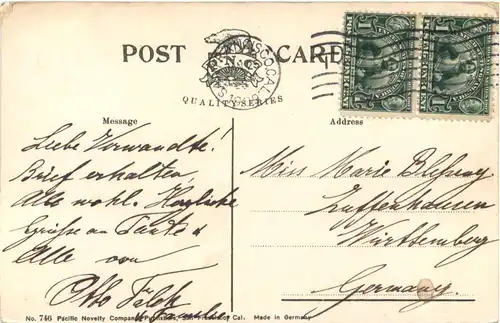 POST CARD
P N C
QUALITY SERIES
SAN FRANCISCO, CAL.
Message
Address
Liebe Verwandte!
Brief erhalten,
Alles wohl. Herzliche
Grüße an Tante &
Alle von
Otto Falck
u Familie
Miss Marie
Zuffenhausen
Württemberg
Germany.
No. 746 Pacific Novelty Company, Publishers, San Francisco Cal. Made in Germany